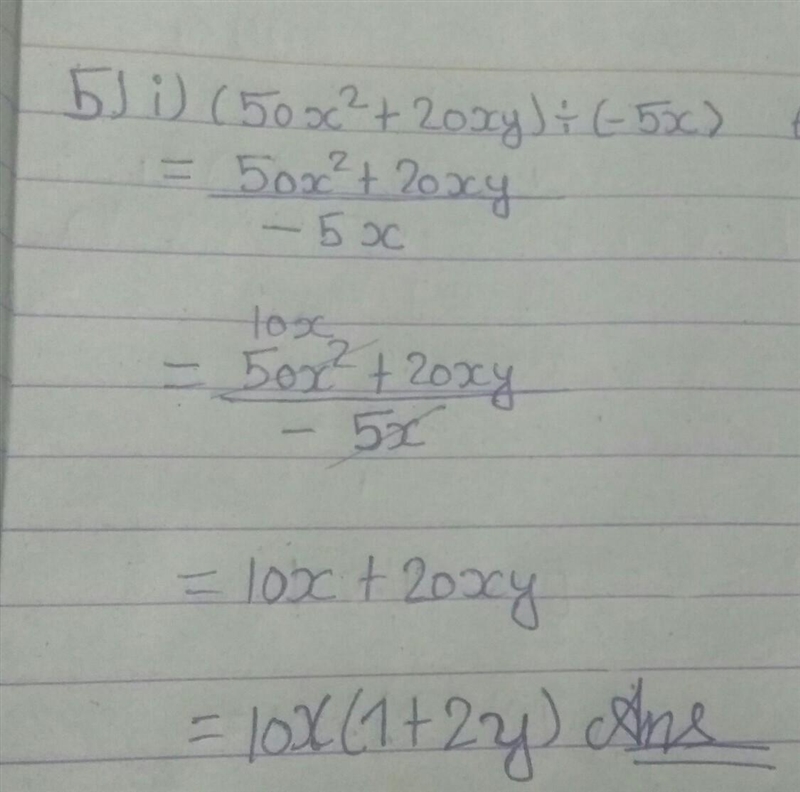 5) i) (50x² + 20xy) ÷ (-5x)
= 50x² + 20xy
- 5x
10x
= 50x² + 20xy
- 5x
= 10x + 20xy
= 10x(1 + 2y) Ans